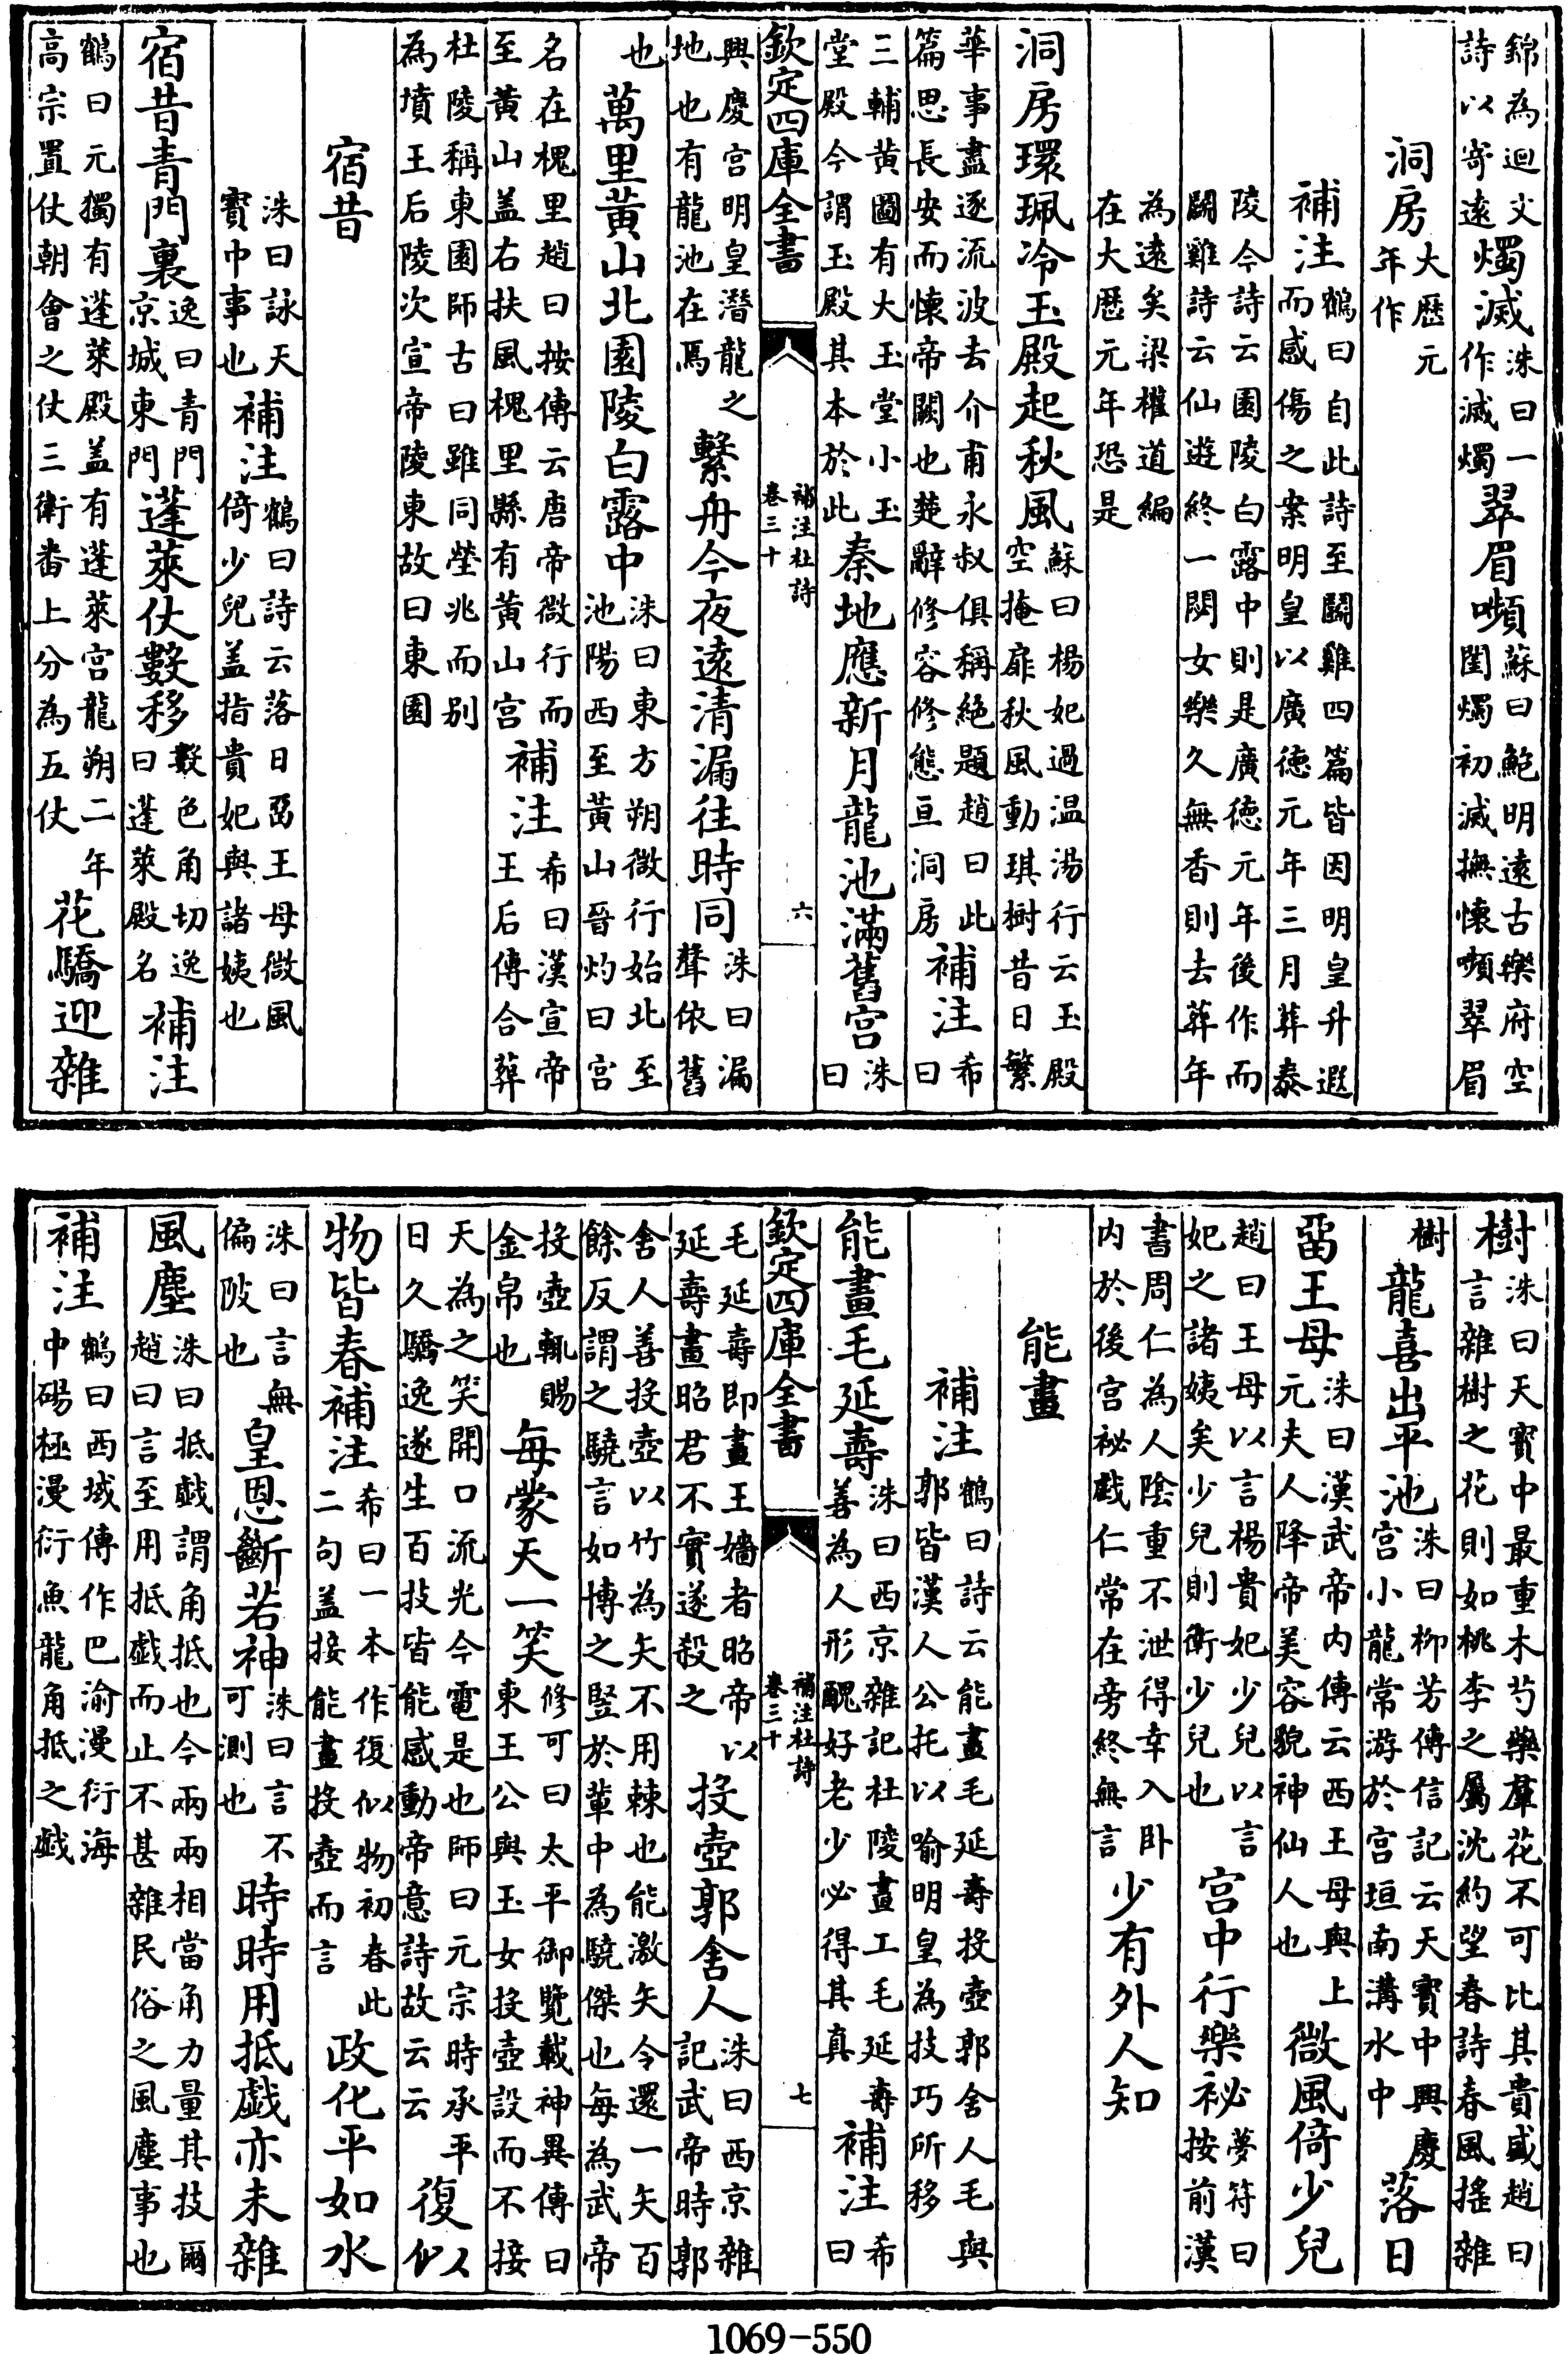 錦為迴文詩以寄遠燭滅洙曰一作滅燭翠眉嚬蘇曰鮑明遠古樂府空閨燭初滅撫懷嚬翠眉
洞房大歷元年作
補注鶴曰自此詩至鬭雞四篇皆因明皇升遐而感傷之案明皇以廣徳元年三月葬泰
陵今詩云園陵白露中則是廣徳元年後作而鬭雞詩云仙遊終一閟女樂久無香則去葬年
為遠矣梁權道編在大歷元年恐是
洞房環珮冷玉殿起秋風蘇曰楊妃過温湯行云玉殿空掩扉秋風動琪樹昔日繁
華事盡逐流波去介甫永叔俱稱絶題趙曰此篇思長安而懷帝闕也楚辭修容修態亘洞房補注希曰
三輔黃圖有大玉堂小玉堂殿今謂玉殿其本於此秦地應新月龍池滿舊宮洙曰
欽定四庫全書 補注杜詩 卷三十 六
興慶宮明皇潛龍之地也有龍池在焉繫舟今夜遠清漏往時同洙曰漏聲依舊
也萬里黃山北園陵白露中洙曰東方朔微行始北至池陽西至黃山晉灼曰宮
名在槐里趙曰按傳云唐帝微行而至黃山盖右扶風槐里縣有黃山宮補注希曰漢宣帝王后傳合葬
杜陵稱東園師古曰雖同塋兆而别為墳王后陵次宣帝陵東故曰東園
宿昔
洙曰詠天寶中事也補注鶴曰詩云落日留王母微風倚少兒盖指貴妃與諸姨也
宿昔青門裏逸曰青門京城東門蓬萊仗數移數色角切逸曰蓬萊殿名補注
鶴曰元獨有蓬萊殿盖有蓬萊宮龍朔二年高宗置仗朝會之仗三衛番上分為五仗花驕迎雜
樹洙曰天寶中最重木芍藥羣花不可比其貴盛趙曰言雜樹之花則如桃李之屬沈約望春詩春風搖雜
樹龍喜出平池洙曰柳芳傳信記云天寶中興慶宮小龍常游於宮垣南溝水中落日
留王母洙曰漢武帝内傳云西王母與上元夫人降帝美容貌神仙人也微風倚少兒
趙曰王母以言楊貴妃少兒以言妃之諸姨矣少兒則衛少兒也宮中行樂祕夢符曰按前漢
書周仁為人陰重不泄得幸入卧内於後宮祕戲仁常在旁終無言少有外人知
能畫
補注鶴曰詩云能畫毛延壽投壺郭舍人毛與郭皆漢人公托以喻明皇為技巧所移
能畫毛延壽洙曰西京雜記杜陵畫工毛延壽善為人形醜好老少必得其真補注希曰
欽定四庫全書 補注杜詩 卷三十 七
毛延壽即畫王嬙者昭帝以延壽畫昭君不實遂殺之投壺郭舍人洙曰西京雜記武帝時郭
舍人善投壺以竹為矢不用棘也能激矢令還一矢百餘反謂之驍言如博之竪於輩中為驍傑也每為武帝
投壺輒賜金帛也每蒙天一笑修可曰太平御覽載神異傳曰東王公與玉女投壺設而不接
天為之笑開口流光今電是也師曰元宗時承平日久驕逸遂生百技皆能感動帝意詩故云云復似
物皆春補注希曰一本作復似物初春此二句盖接能畫投壺而言政化平如水
洙曰言無偏陂也皇恩斷若神洙曰言不可測也時時用抵戲亦未雜
風塵洙曰抵戲謂角抵也今兩兩相當角力量其技爾趙曰言至用抵戲而止不甚雜民俗之風塵事也
補注鶴曰西域傳作巴渝漫衍海中碭極漫衍魚龍角抵之戲
1069-550